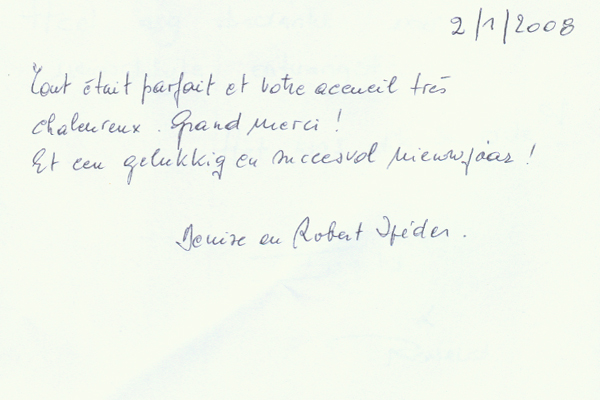 2/1/2008
Tout était parfait et votre accueil très
chaleureux. Grand merci !
Et een gelukkig en succesvol nieuwjaar !
Denise en Robert